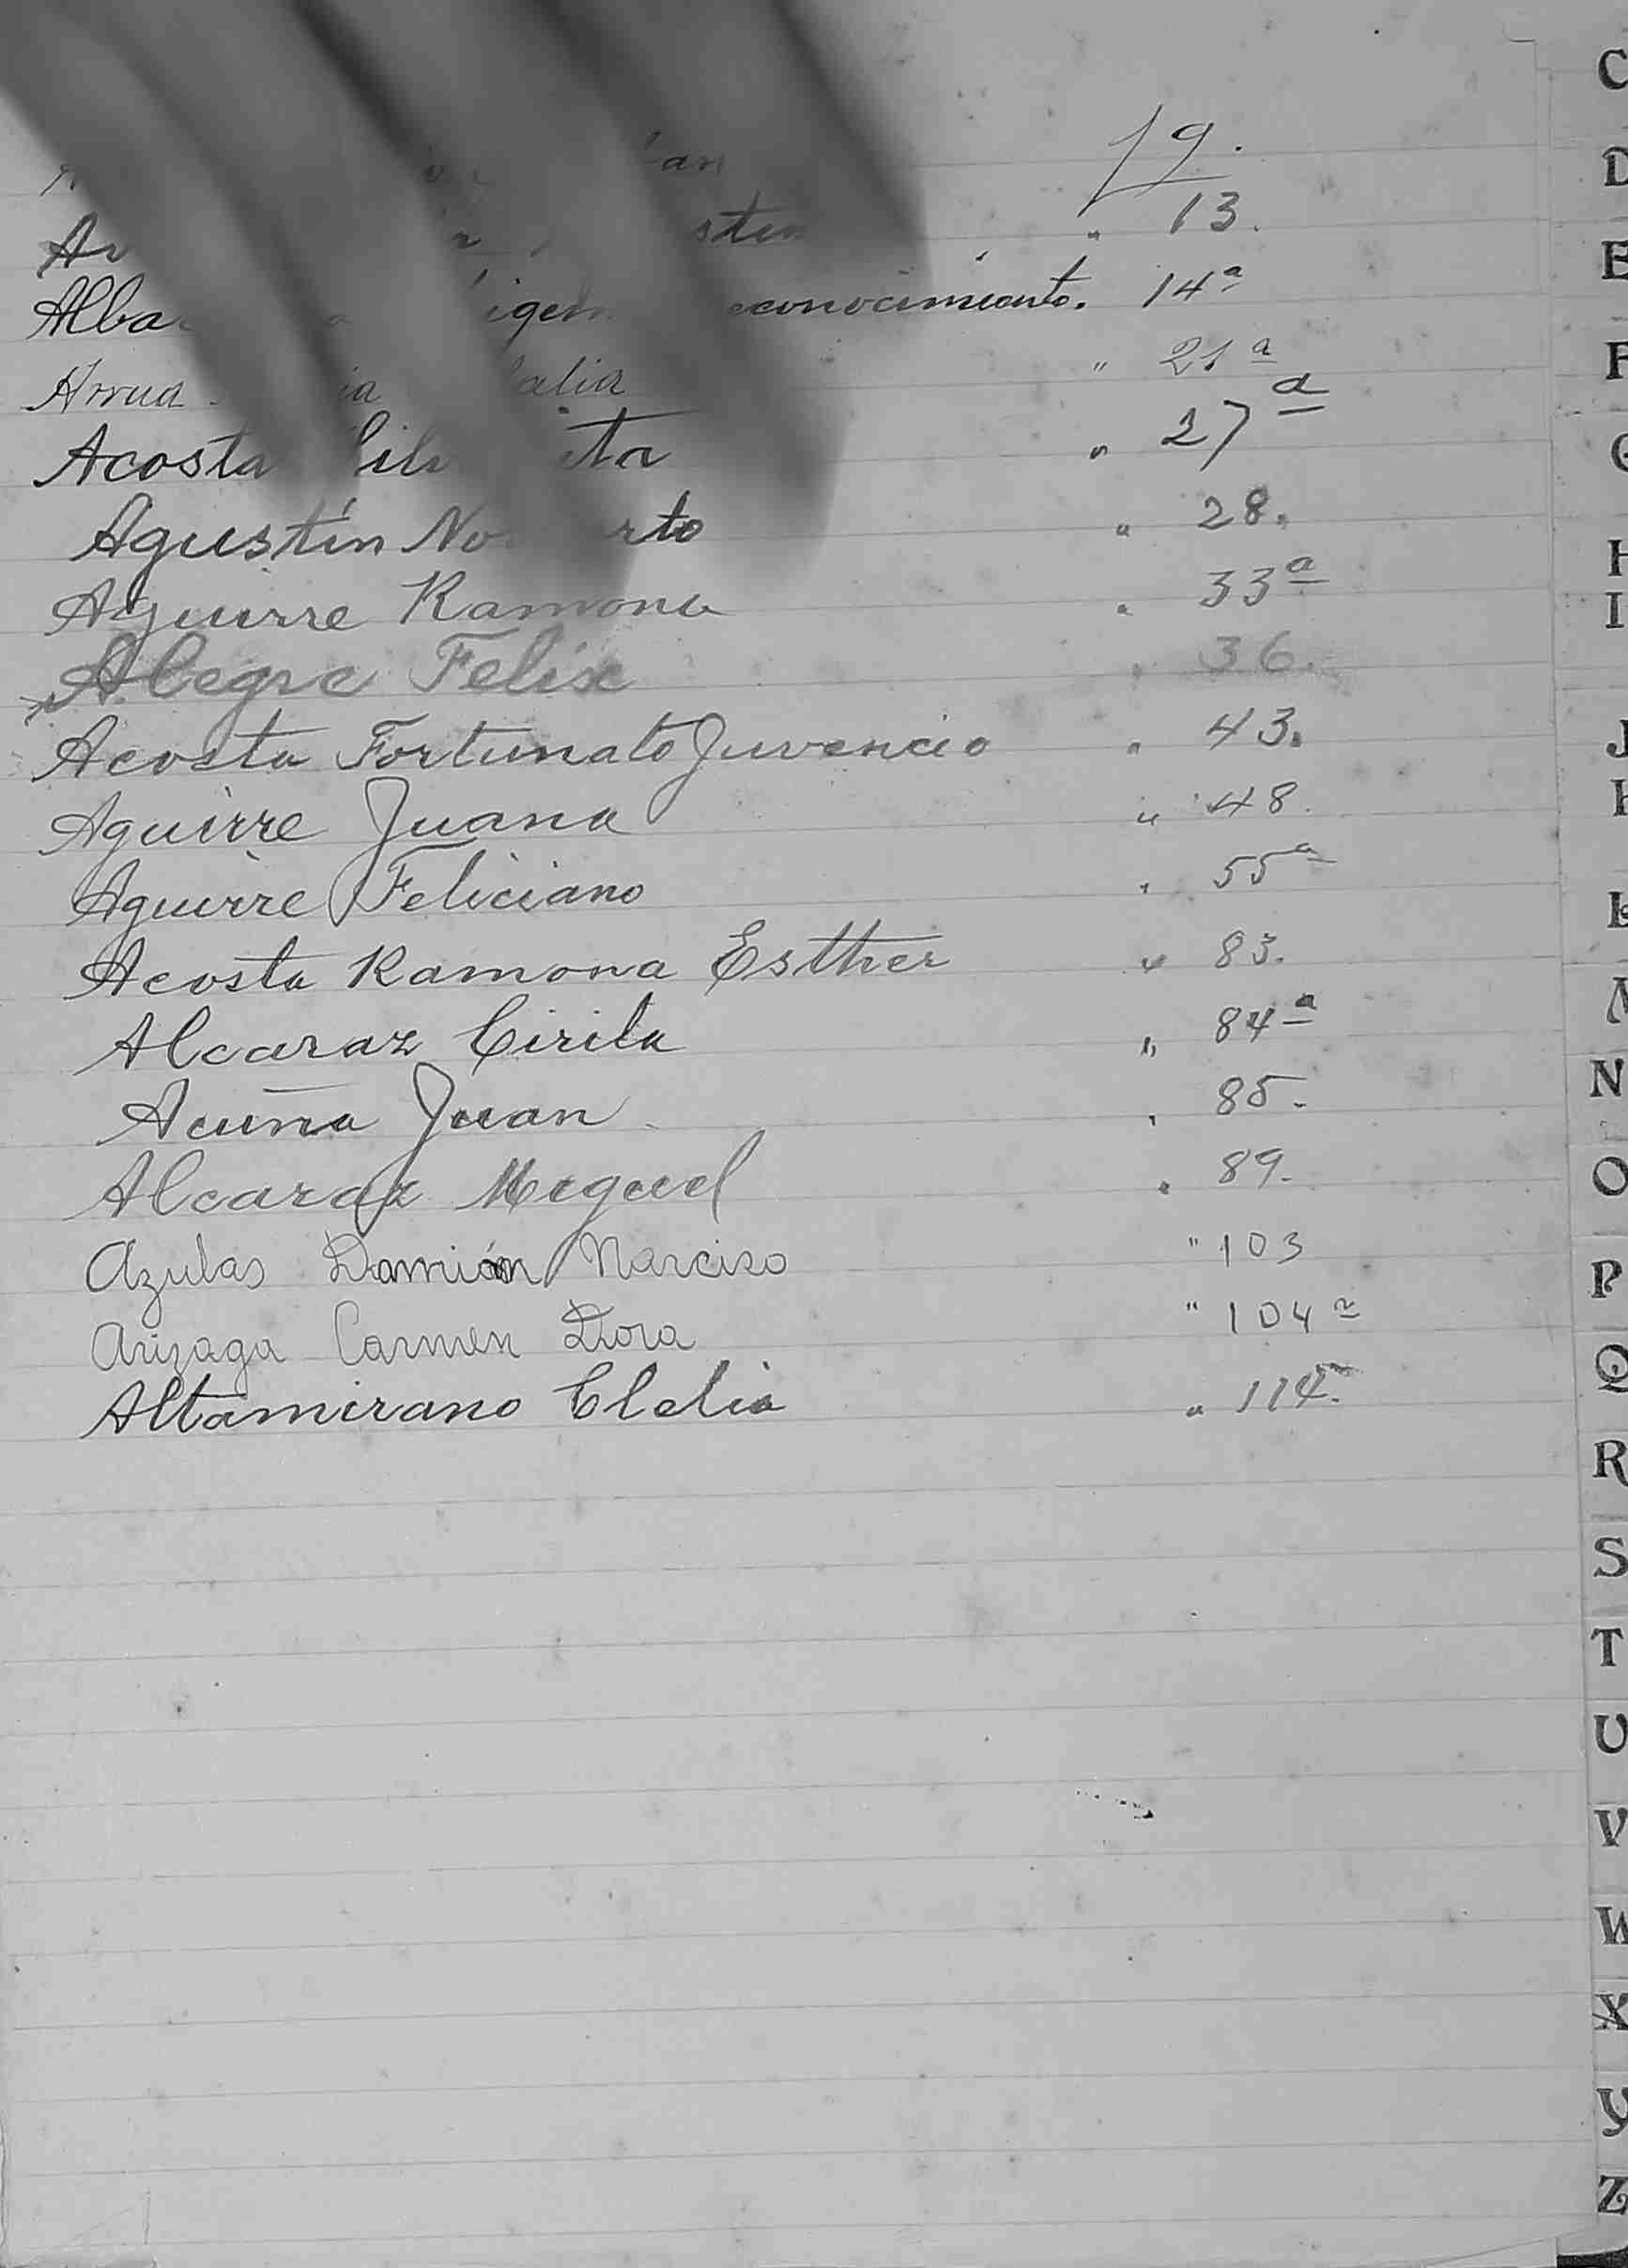 9.
" 13.
econocimiento. 14ª
" 21ª
Acosta " 27ª
Agustín " 28.
Aguirre Ramona " 33ª
Alegre Felix " 36.
Acosta Fortunato Juvencio " 43.
Aguirre Juana " 48.
Aguirre Feliciano " 55ª
Acosta Ramona Esther " 83.
Alcaraz Cirila " 84ª
Acuña Juan " 85.
Alcaraz Miguel " 89.
Azulas Damián Narciso " 103
Arizaga Carmen Dora " 104ª
Altamirano Clelia " 114.
C
D
E
F
G
H
I
J
K
L
M
N
O
P
Q
R
S
T
U
V
W
X
Y
Z